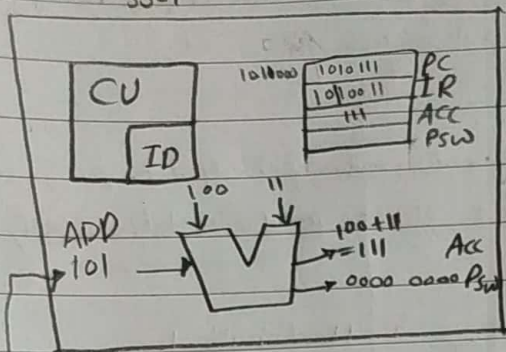 CU
ID
1011000 1010111 PC
1010011 IR
111 ACC
PSW
100 11
ADD
101
100+11
=111 Acc
0000 0000 PSW